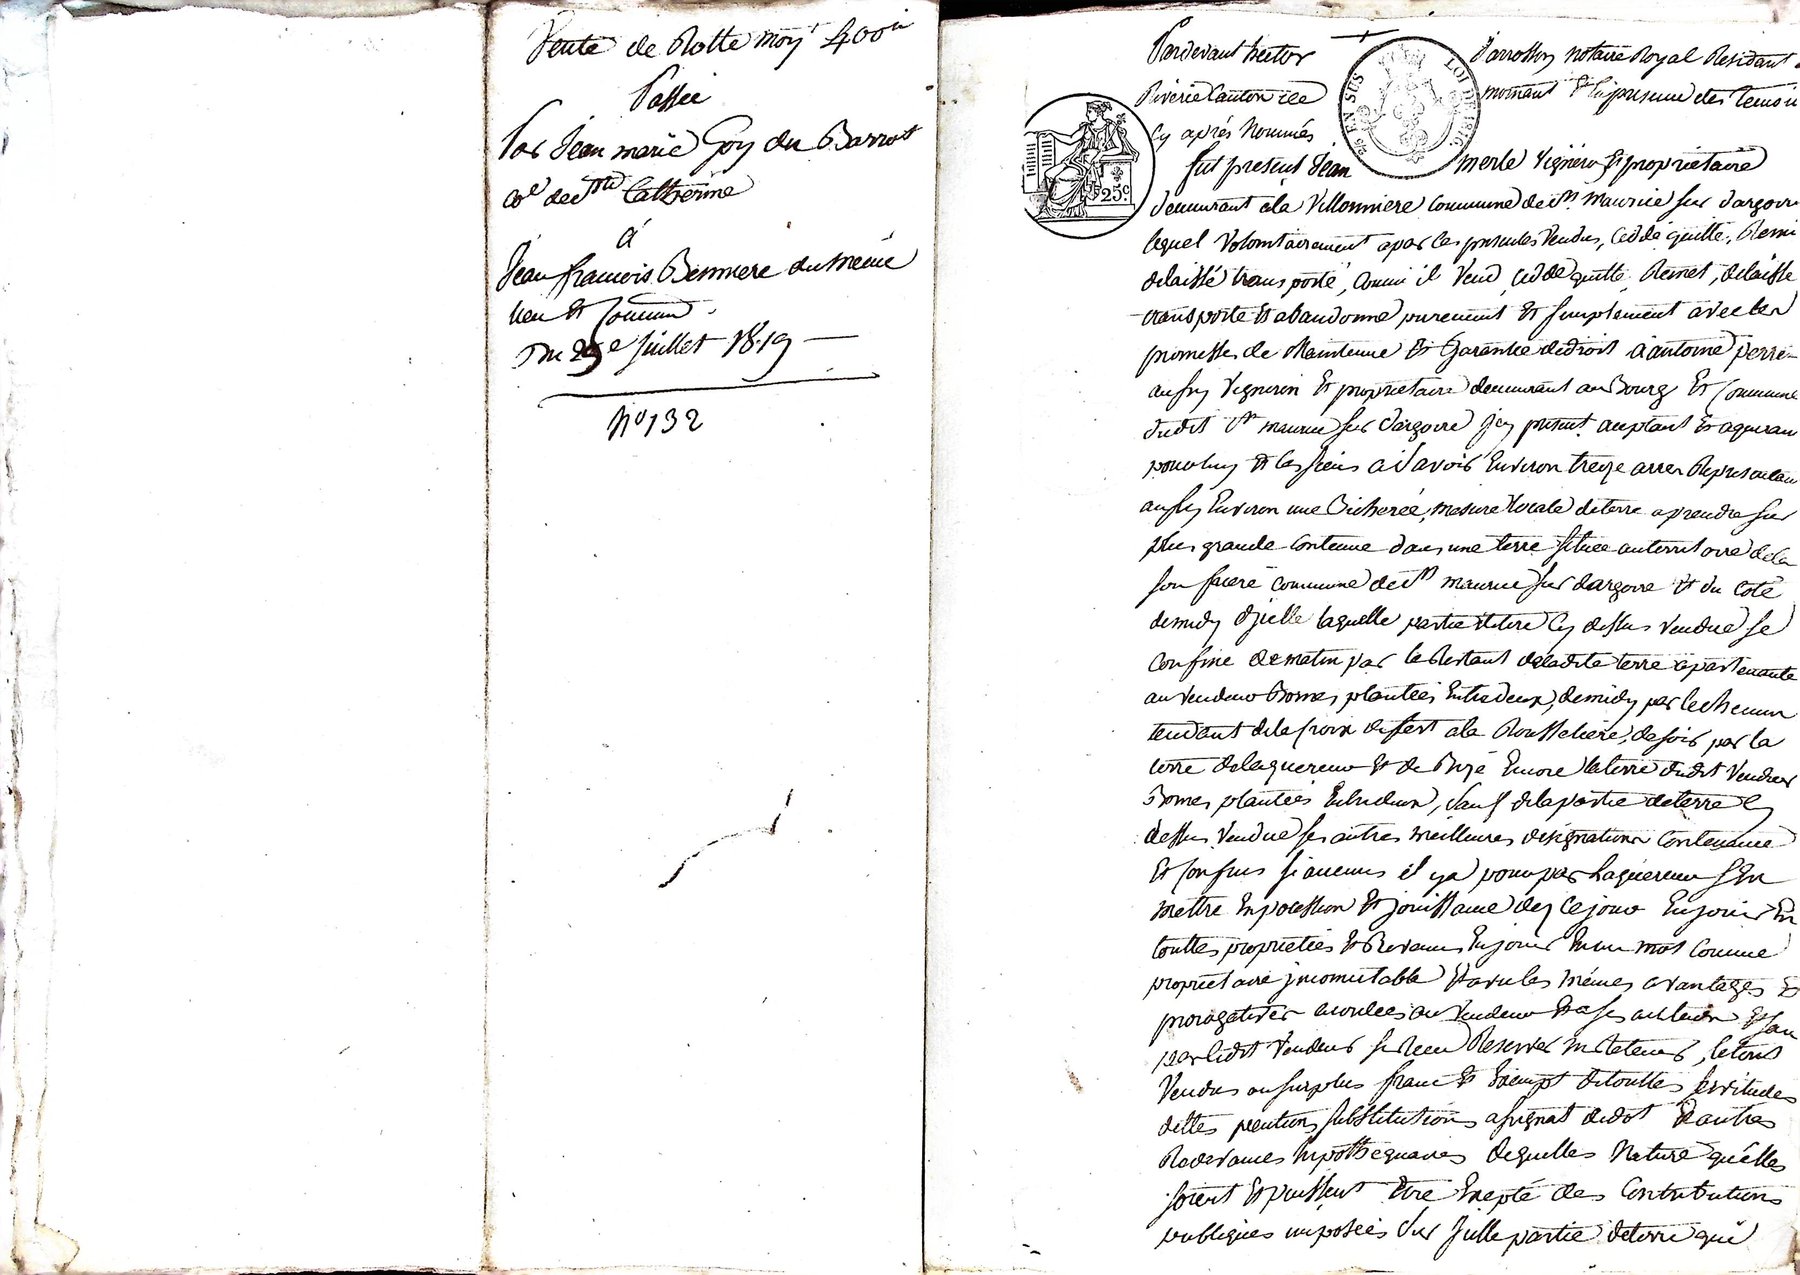 Vente de Rotte moy.t 400#
Passée
Par Jean marie Goy du Barrot
c.e de s.te Catherine
à
Jean francois Bonniere du même
lieu et Commune.
Du 29e juillet 1819 —
N° 132
Pardevant hector
Jarrosson notaire Royal Residant
Riverie Canton de
mornant & En presence des Temoins
Cy aprés Nommés
EN SUS
LOI DE 1816
25c
fut present Jean
merle Vigneron & proprietaire
demeurant à la Villonniere commune de st maurice sur dargoire
lequel Volontairement a par ces presentes Vendu, cedde quitté, Remi
delaissé transporté, comme il Vend, cedde quitte, Remet, delaisse
transporte et abandonne purement et simplement avec les
promesses de Maintenue et Garantie de droit à antoine perre-
aussy Vigneron Et proprietaire demeurant au Bourg Et Commune
dudit st maurice sur dargoire icy présent acceptant et aqueran
pour luy et les siens a Savoir Environ treize arres Representan
aussy Environ une Bicherée, mesure locale de terre a prendre sur
plus grande contenue dans une terre située au territoire de la
commune de st maurice sur dargoire et du coté
de midy d'jcelle laquelle partie de terre cy dessus vendue se
confine de matin par le Restant de ladite terre apartenante
au vendeur Bornes plantées Entredeux, de midy par le chemin
tendant de la croix de fert a la Rousseliere, de soir par la
terre de laquereur et de Bize Encore la terre dudit Vendeur
Bornes plantées Entredeux, Sauf de la partie de terre cy
dessus Vendue ses autres meilleures désignations Contenance
Et confins si aucuns il y a pour par Laquéreur S'En
mettre En possession et jouissance dez ce jour En jouir En
touttes proprietées et Revenus En jouir En un mot comme
proprietaire jncomutable Et avec les mêmes avantages et
prorogatives acordées au Vendeur et a ses auteurs & san
par ledit Vendeur sy Rien Reserver ny retenir, le tout
Vendus au surplus franc et Exempt de touttes servitudes
dettes pentions substitutions assignat de dot et autres
Redevances hypothequaires de quelles Nature qu'elles
soient Et puissent être Excepté des Contributions
publiques imposées sur jcelle partie de terre que